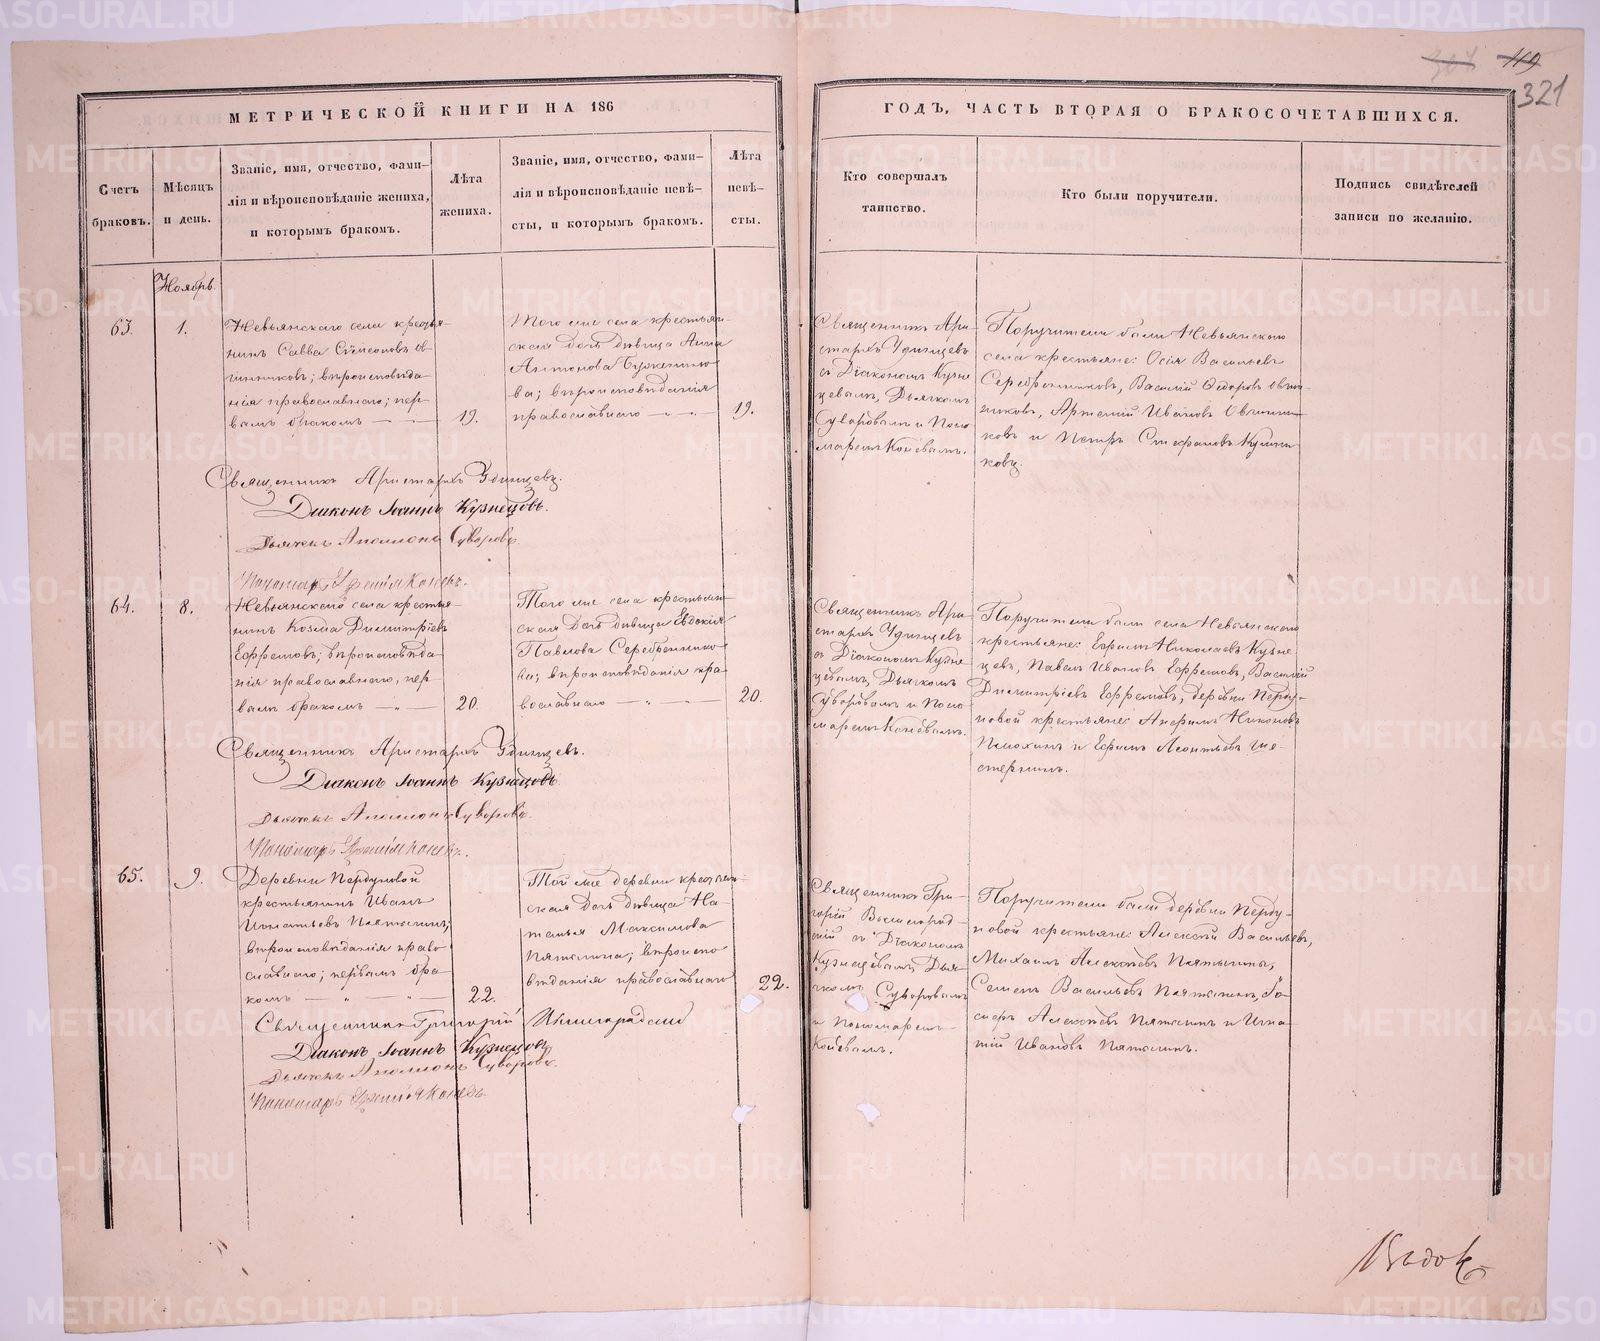 321
МЕТРИЧЕСКОЙ КНИГИ НА 186
ГОДЪ, ЧАСТЬ ВТОРАЯ О БРАКОСОЧЕТАВШИХСЯ.
Счетъ
браковъ.
Мѣсяцъ
и день.
Званіе, имя, отчество, фами-
лія и вѣроисповѣданіе жениха,
и которымъ бракомъ.
Лѣта
жениха.
Званіе, имя, отчество, фами-
лія и вѣроисповѣданіе невѣ-
сты, и которымъ бракомъ.
Лѣта
невѣ-
сты.
Кто совершалъ
таинство.
Кто были поручители.
Подпись свидѣтелей
записи по желанію.
Ноябрь.
63.
1.
Невьянскаго села крестья-
нинъ Савва Сѵмеоновъ Ов-
чинниковъ; вѣроисповѣда-
нія православнаго; пер-
вымъ бракомъ
19.
Того же села крестьян-
ская дочь дѣвица Анна
Антонова
ва; вѣроисповѣданія
православнаго
19.
Священникъ Ари-
стархъ Удинцевъ
съ Діакономъ Кузне-
цовымъ, Дьячкомъ
Суворовымъ и Поно-
маремъ Коневымъ.
Поручители были Невьянскаго
села крестьяне: Осія Васильевъ
Серебренниковъ, Василій Ѳедоровъ Овчин-
никовъ, Артемій Ивановъ Овчинни-
ковъ и Петръ Стефановъ
ковъ.
Священникъ Аристархъ Удинцевъ.
Діаконъ Іоаннъ Кузнецовъ.
Дьячекъ Аполлонъ Суворовъ.
Пономарь Коневъ.
64.
8.
Невьянскаго села крестья-
нинъ Козма Димитріевъ
Ефремовъ; вѣроисповѣда-
нія православнаго, пер-
вымъ бракомъ
20.
Того же села крестьян-
ская дочь дѣвица Евдокія
Павлова Серебреннико-
ва; вѣроисповѣданія пра-
вославнаго
20.
Священникъ Ари-
стархъ Удинцевъ
съ Діакономъ Кузне-
цовымъ, Дьячкомъ
Суворовымъ и Поно-
маремъ Коневымъ.
Поручители были села Невьянскаго
крестьяне: Ефимъ Николаевъ Кузне-
цевъ, Павелъ Ивановъ Ефремовъ, Василій
Димитріевъ Ефремовъ, деревни Перду-
новой крестьяне: Анфимъ Никоновъ
и Ефимъ Леонтьевъ Ше-
стернинъ.
Священникъ Аристархъ Удинцевъ.
Діаконъ Іоаннъ Кузнецовъ.
Дьячекъ Аполлонъ Суворовъ.
Пономарь Коневъ.
65.
9.
Деревни Пердуновой
крестьянинъ Иванъ
Игнатьевъ Пятыгинъ;
вѣроисповѣданія право-
славнаго; первымъ бра-
комъ
22.
Той же деревни крестьян-
ская дочь дѣвица На-
талья Максимова
Пятыгина; вѣроиспо-
вѣданія православнаго
22.
Священникъ Гри-
горій
съ Діакономъ
Кузнецовымъ, Дья-
чкомъ Суворовымъ
и Пономаремъ
Коневымъ.
Поручители были деревни Перду-
новой крестьяне: Алексѣй Васильевъ,
Михаилъ Алексѣевъ Пятыгины,
Семенъ Васильевъ Пятыгинъ,
Алексѣевъ Пятыгинъ и Игна-
тій Ивановъ Пятыгинъ.
Священникъ Григорій
Діаконъ Іоаннъ Кузнецовъ
Дьячекъ Аполлонъ Суворовъ.
Пономарь Коневъ.